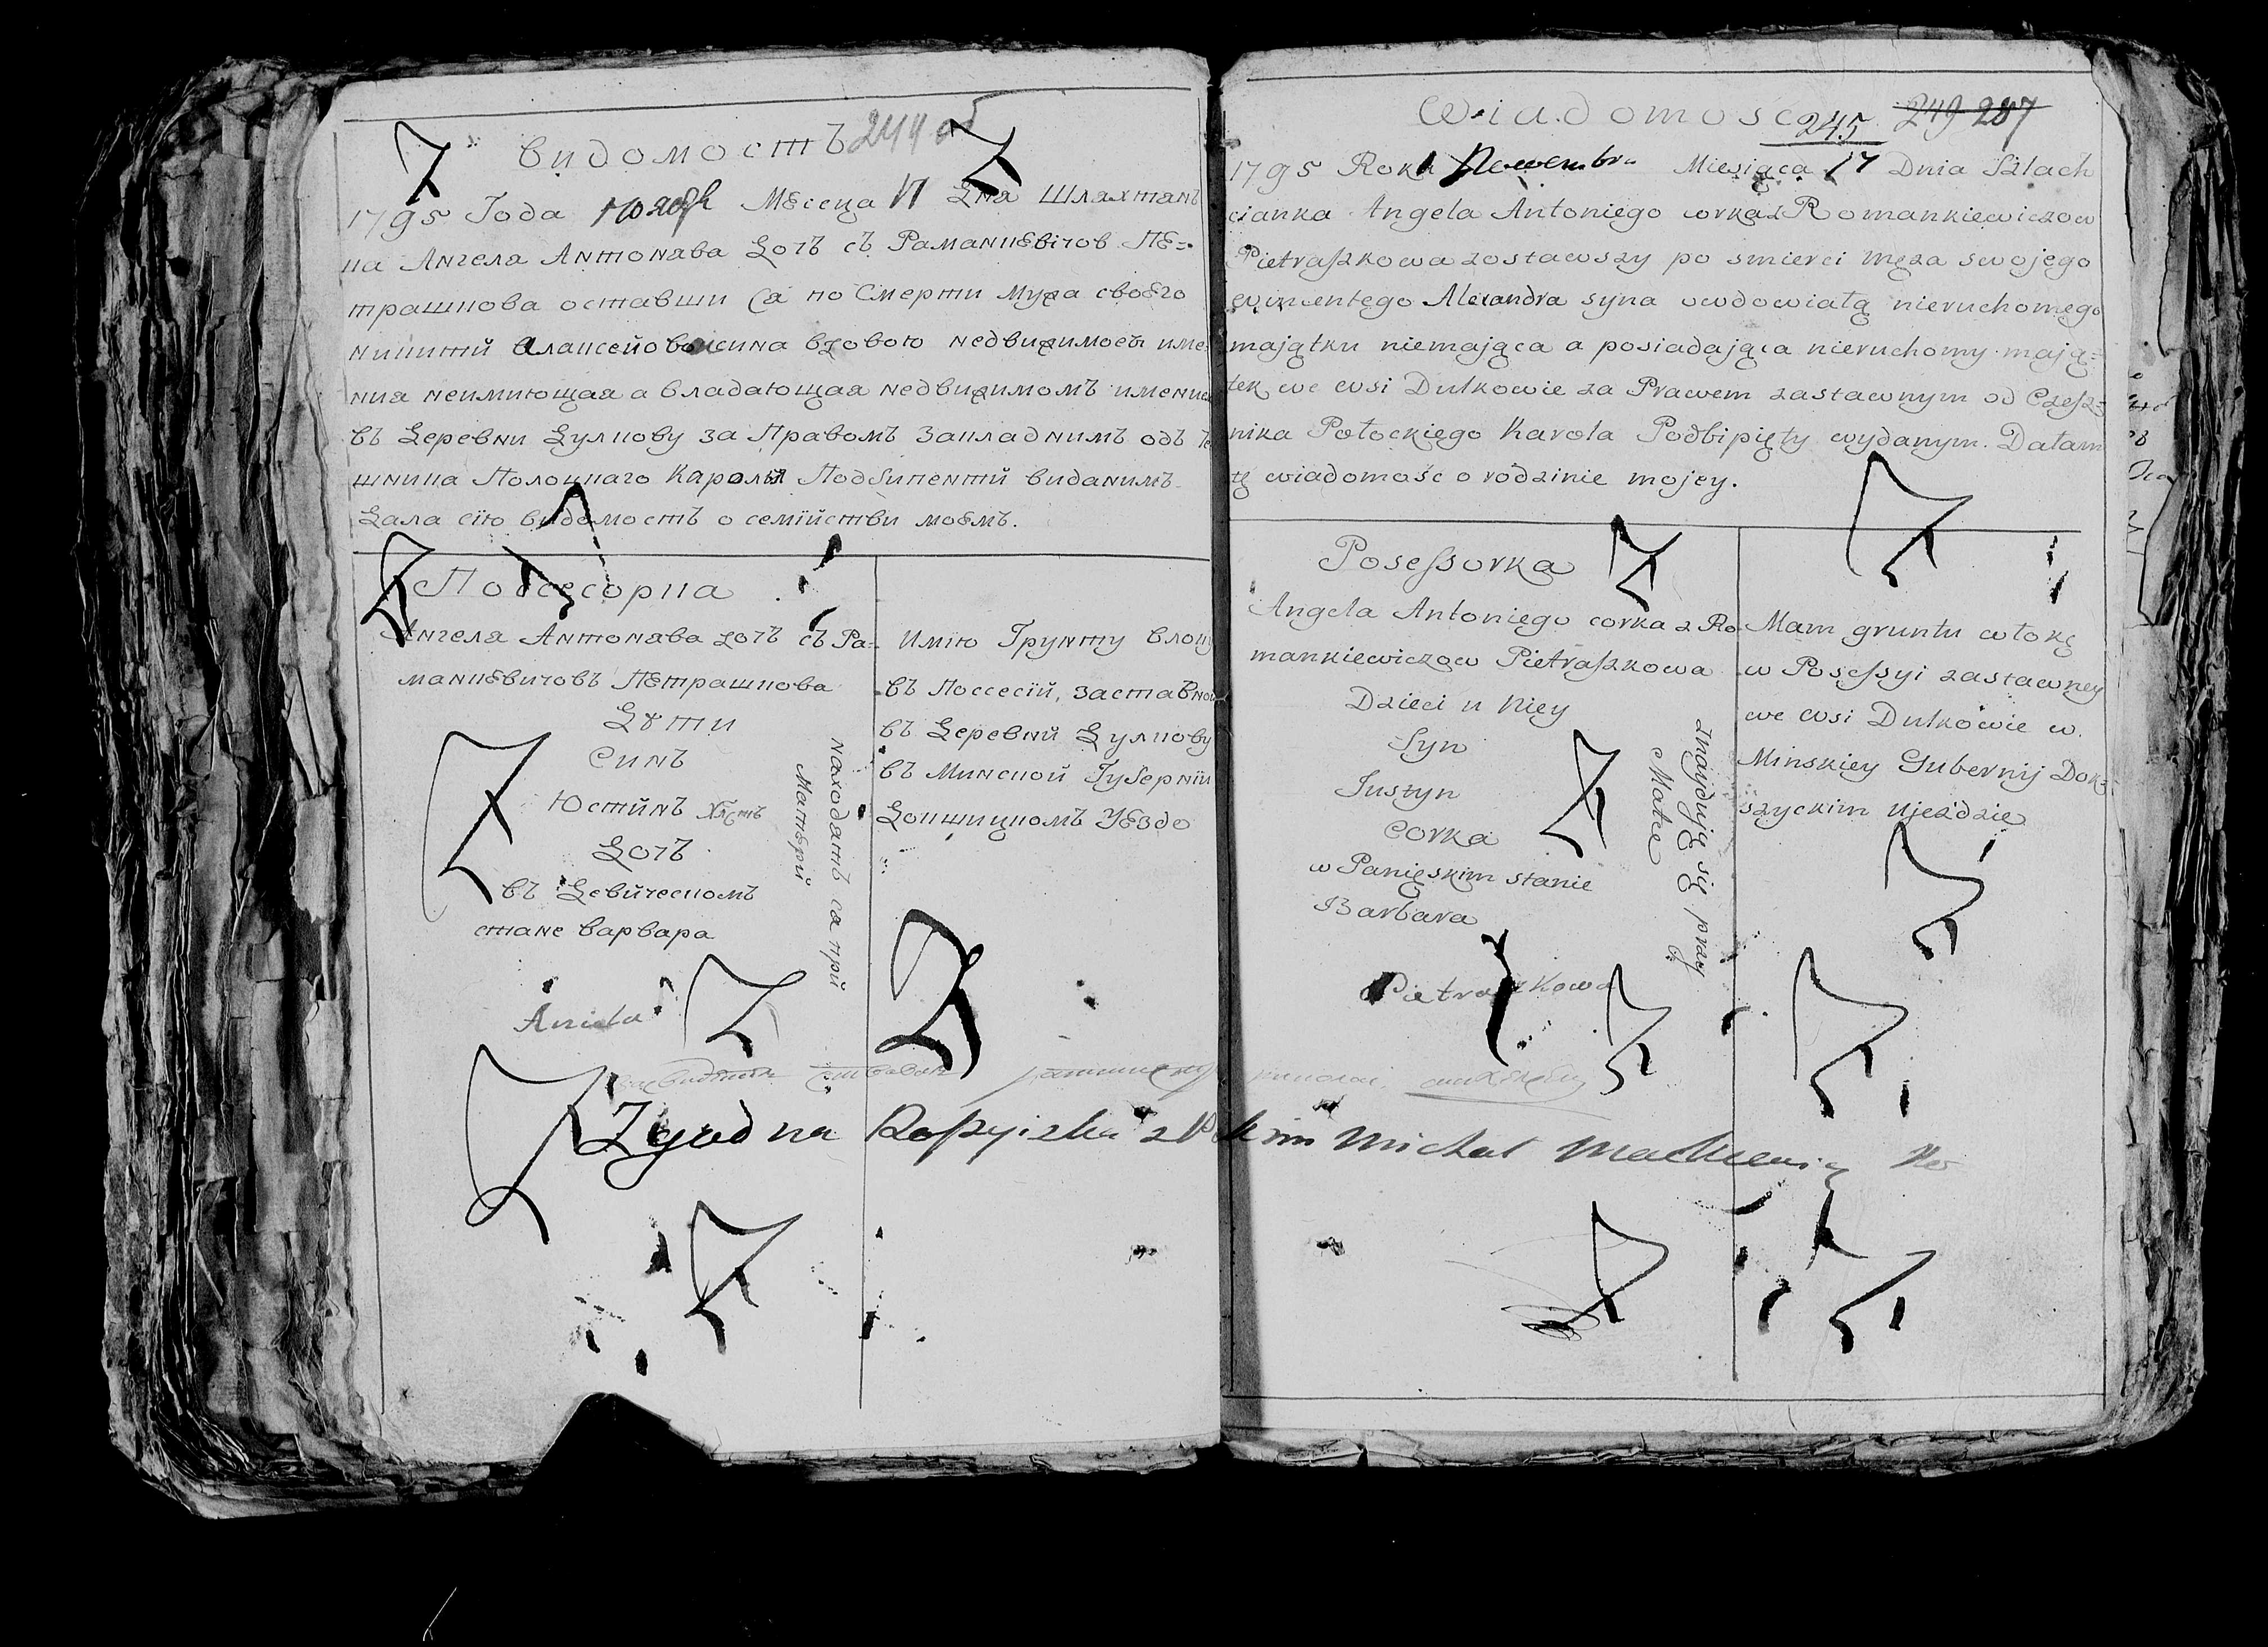 Видомость 244 об
1795 Года ноябр Месеца 17 Дня Шляхтян
ка Ангела Антонява Доть съ Раманкевічов Пе=
трашкова оставши ся по Смерти мужа своего
алаксейова сина вдовою недвижимост име
ния неимиющая а владающая недвижимомъ имение
въ Деревни Дулкову за Правомъ Закладнимъ одъ Че
шника Полоцкаго Кароля Подбипентй виданимъ
Дала сїю видомость о семїйстви моемъ.
Поссесорка
Ангела Антонява доть съ Ра=
манкевичовъ Петрашкова
Дѣти
Синъ
Юстїнъ
Доть
въ Девйческомъ
стане Варвара
находять ся прй
Матерїй
Имїю Грунту влоку
въ Поссесїй заставной
въ Деревнй Дулкову
въ Минской Губернїи
Докшицкомъ Уезде
Aniela
Zgodna Kopyizka z
Wiadomosc
245 249 287
1795 Roku Nowembra Miesiąca 17 Dnia Szlach
cianka Angela Antoniego corka z Romankiewiczow
Pietraszkowa zostawszy po smierci męża swojego
wincentego Alexandra syna owdowiałą nieruchomego
majątku niemająca a posiadająca nieruchomy mają=
tek we wsi Dulkowie za Prawem zastawnym od Czesz=
nika Połockiego Karola Podbipięty wydanym. Dałam
tę wiadomość o rodzinie mojey.
Posessorka
Angela Antoniego corka z Ro
mankiewiczow Pietraszkowa
Dzieci u Niey
Syn
Justyn
Corka
w Panięskim stanie
Barbara
znajdują się przy
Matce
Mam gruntu włokę
w Posessyi zastawney
we wsi Dulkowie w
Minskiey Gubernij Dok=
szyckim Ujeździe
Pietraszkowa
Michał Mackiewicz